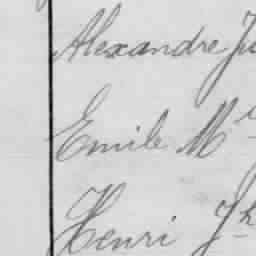 Alexandre Ju
Emile M
Henri Jh